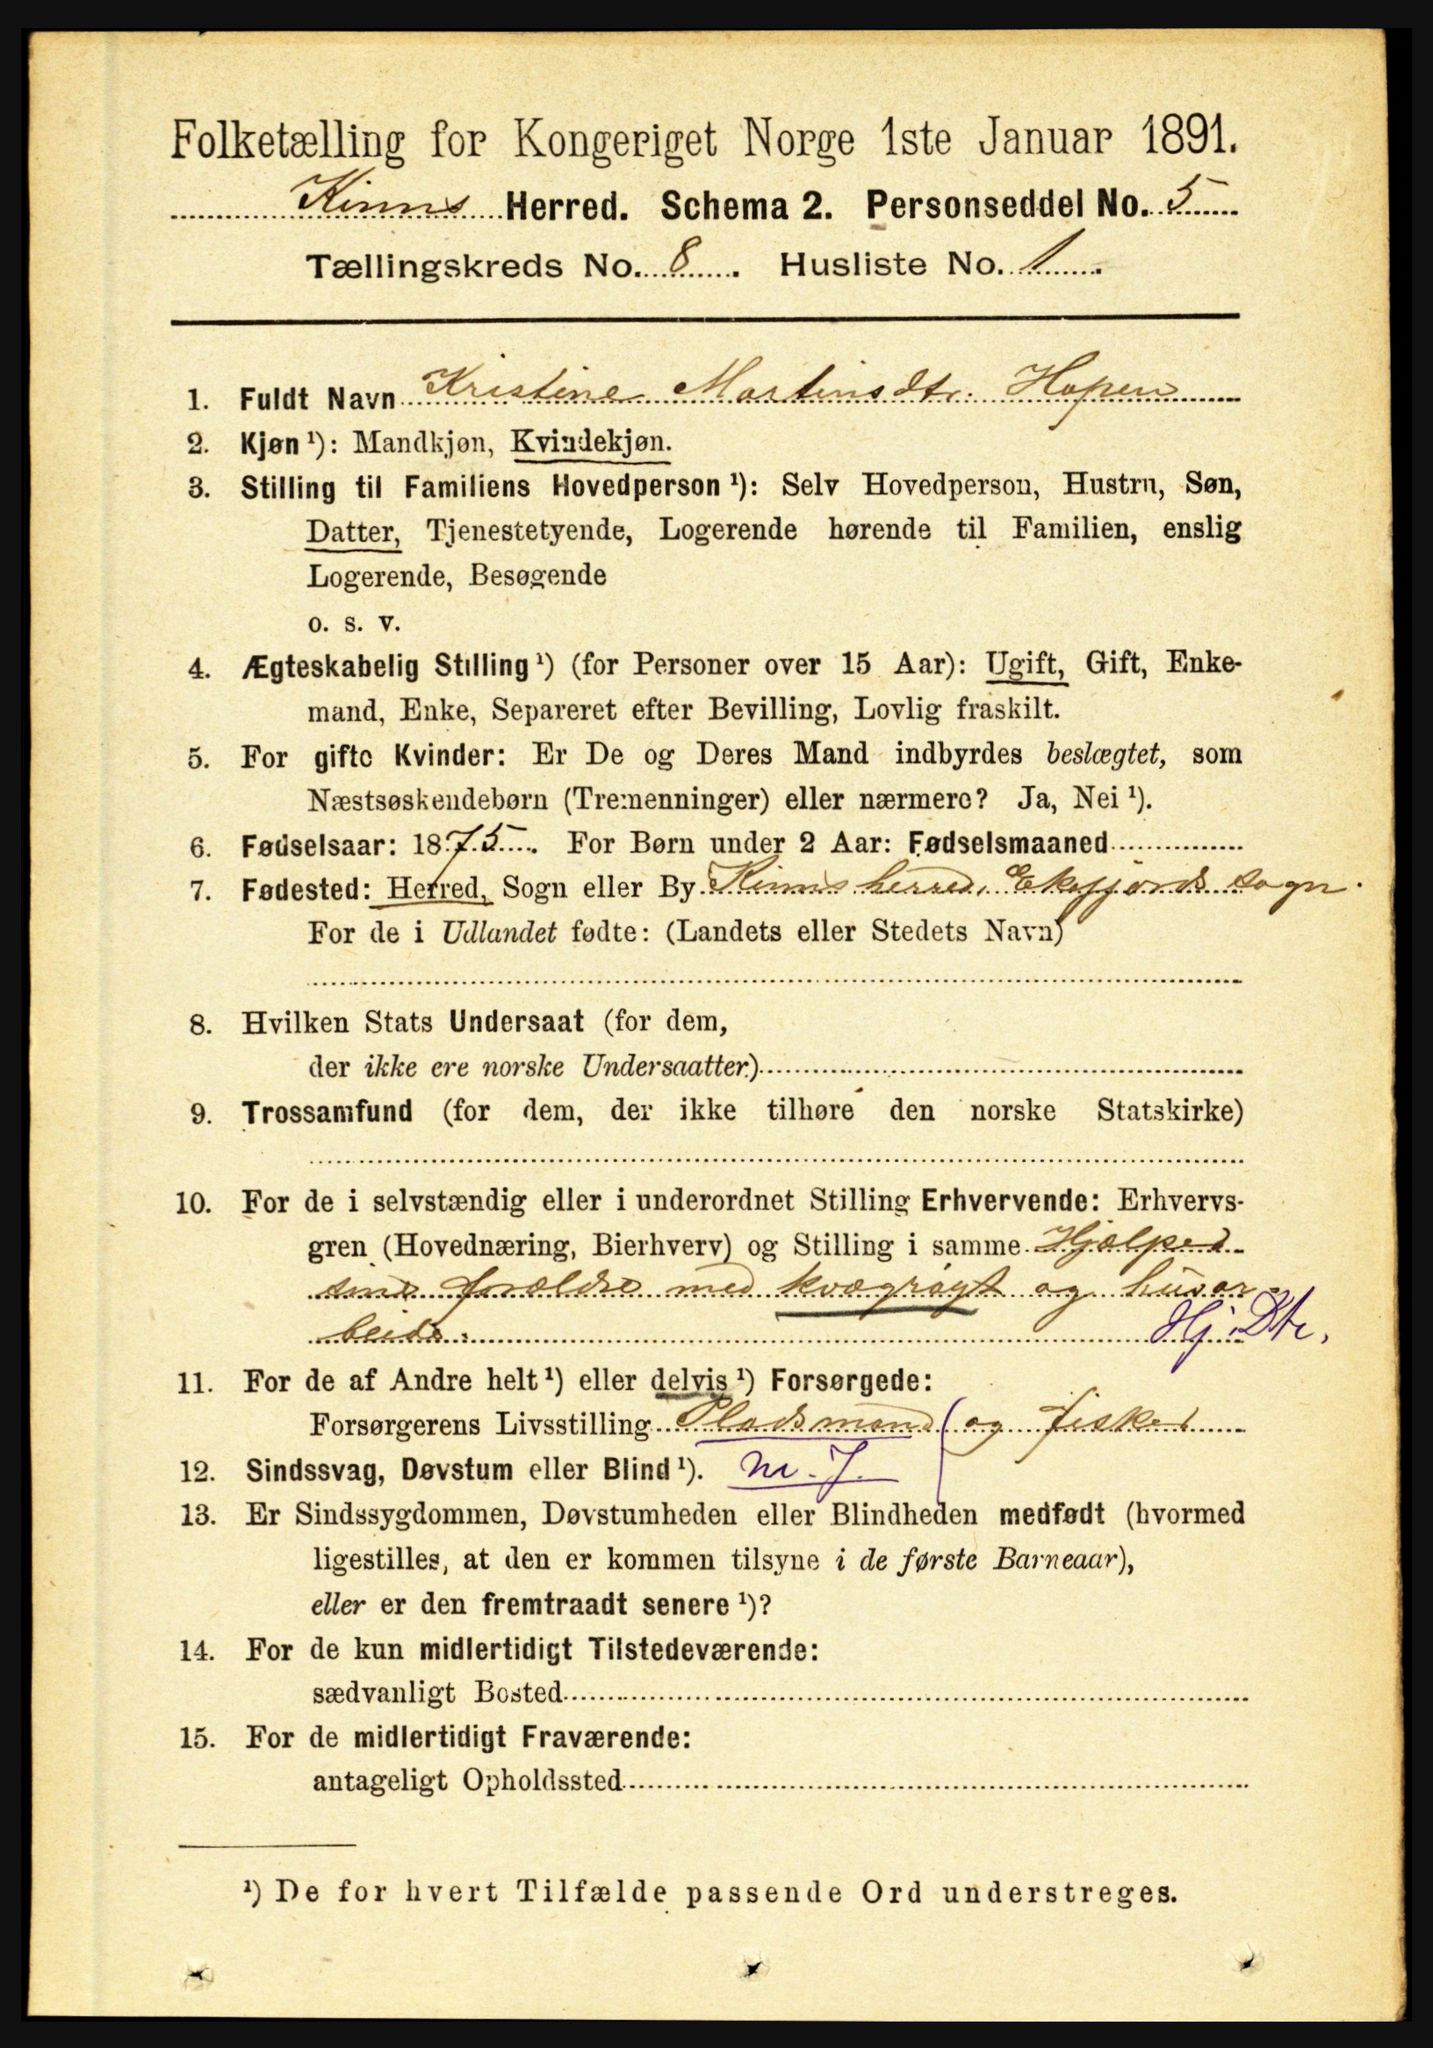 Folketælling for Kongeriget Norge 1ste Januar 1891.
Kinns Herred. Schema 2. Personseddel No. 5
Tællingskreds No. 8. Husliste No. 1.
1. Fuldt Navn Kristine Martinsdtr. Hopen
2. Kjøn ¹): Mandkjøn, Kvindekjøn.
3. Stilling til Familiens Hovedperson ¹): Selv Hovedperson, Hustru, Søn,
Datter, Tjenestetyende, Logerende hørende til Familien, enslig
Logerende, Besøgende
o. s. v.
4. Ægteskabelig Stilling ¹) (for Personer over 15 Aar): Ugift, Gift, Enke-
mand, Enke, Separeret efter Bevilling, Lovlig fraskilt.
5. For gifte Kvinder: Er De og Deres Mand indbyrdes beslægtet, som
Næstsøskendebørn (Tremenninger) eller nærmere? Ja, Nei ¹).
6. Fødselsaar: 1875. For Børn under 2 Aar: Fødselsmaaned
7. Fødested: Herred, Sogn eller By Kinns herred, Ekefjords sogn.
For de i Udlandet fødte: (Landets eller Stedets Navn)
8. Hvilken Stats Undersaat (for dem,
der ikke ere norske Undersaatter.)
9. Trossamfund (for dem, der ikke tilhøre den norske Statskirke)
10. For de i selvstændig eller i underordnet Stilling Erhvervende: Erhvervs-
gren (Hovednæring, Bierhverv) og Stilling i samme Hjælper
sine forældre med kvægrøgt og husar
beide.
Hj. Dtr.
11. For de af Andre helt ¹) eller delvis ¹) Forsørgede:
Forsørgerens Livsstilling Pladsmand og fisker
12. Sindssvag, Døvstum eller Blind ¹). m. J.
13. Er Sindssygdommen, Døvstumheden eller Blindheden medfødt (hvormed
ligestilles, at den er kommen tilsyne i de første Barneaar),
eller er den fremtraadt senere ¹)?
14. For de kun midlertidigt Tilstedeværende:
sædvanligt Bosted
15. For de midlertidigt Fraværende:
antageligt Opholdssted
¹) De for hvert Tilfælde passende Ord understreges.